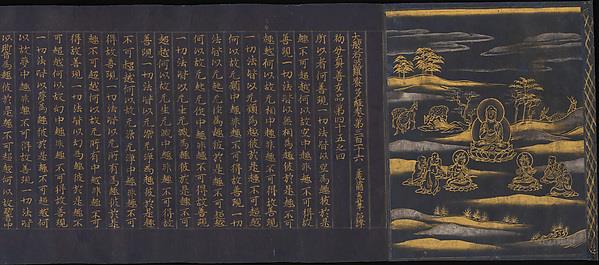 大般若波羅蜜多經卷第三百一十六
初分真善友品第四十五之四
所以者何善現一切法皆以空為趣彼於是
趣不可超越何以故空中趣非趣不可得故
善現一切法皆以无相為趣彼於是趣不可
超越何以故无相中趣非趣不可得故善現
一切法皆以无願為趣彼於是趣不可超越
何以故无願中趣非趣不可得故善現一切
法皆以无起无作為趣彼於是趣不可超越
何以故无起无作中趣非趣不可得故善現
一切法皆以无生无滅為趣彼於是趣不可
超越何以故无生无滅中趣非趣不可得故
善現一切法皆以无染无淨為趣彼於是趣
不可超越何以故无染无淨中趣非趣不可
得故善現一切法皆以无所有為趣彼於是
趣不可超越何以故无所有中趣非趣不可
得故善現一切法皆以幻為趣彼於是趣不
可超越何以故幻中趣非趣不可得故善現
一切法皆以夢為趣彼於是趣不可超越何
以故夢中趣非趣不可得故善現一切法皆
以響為趣彼於是趣不可超越何以故響中